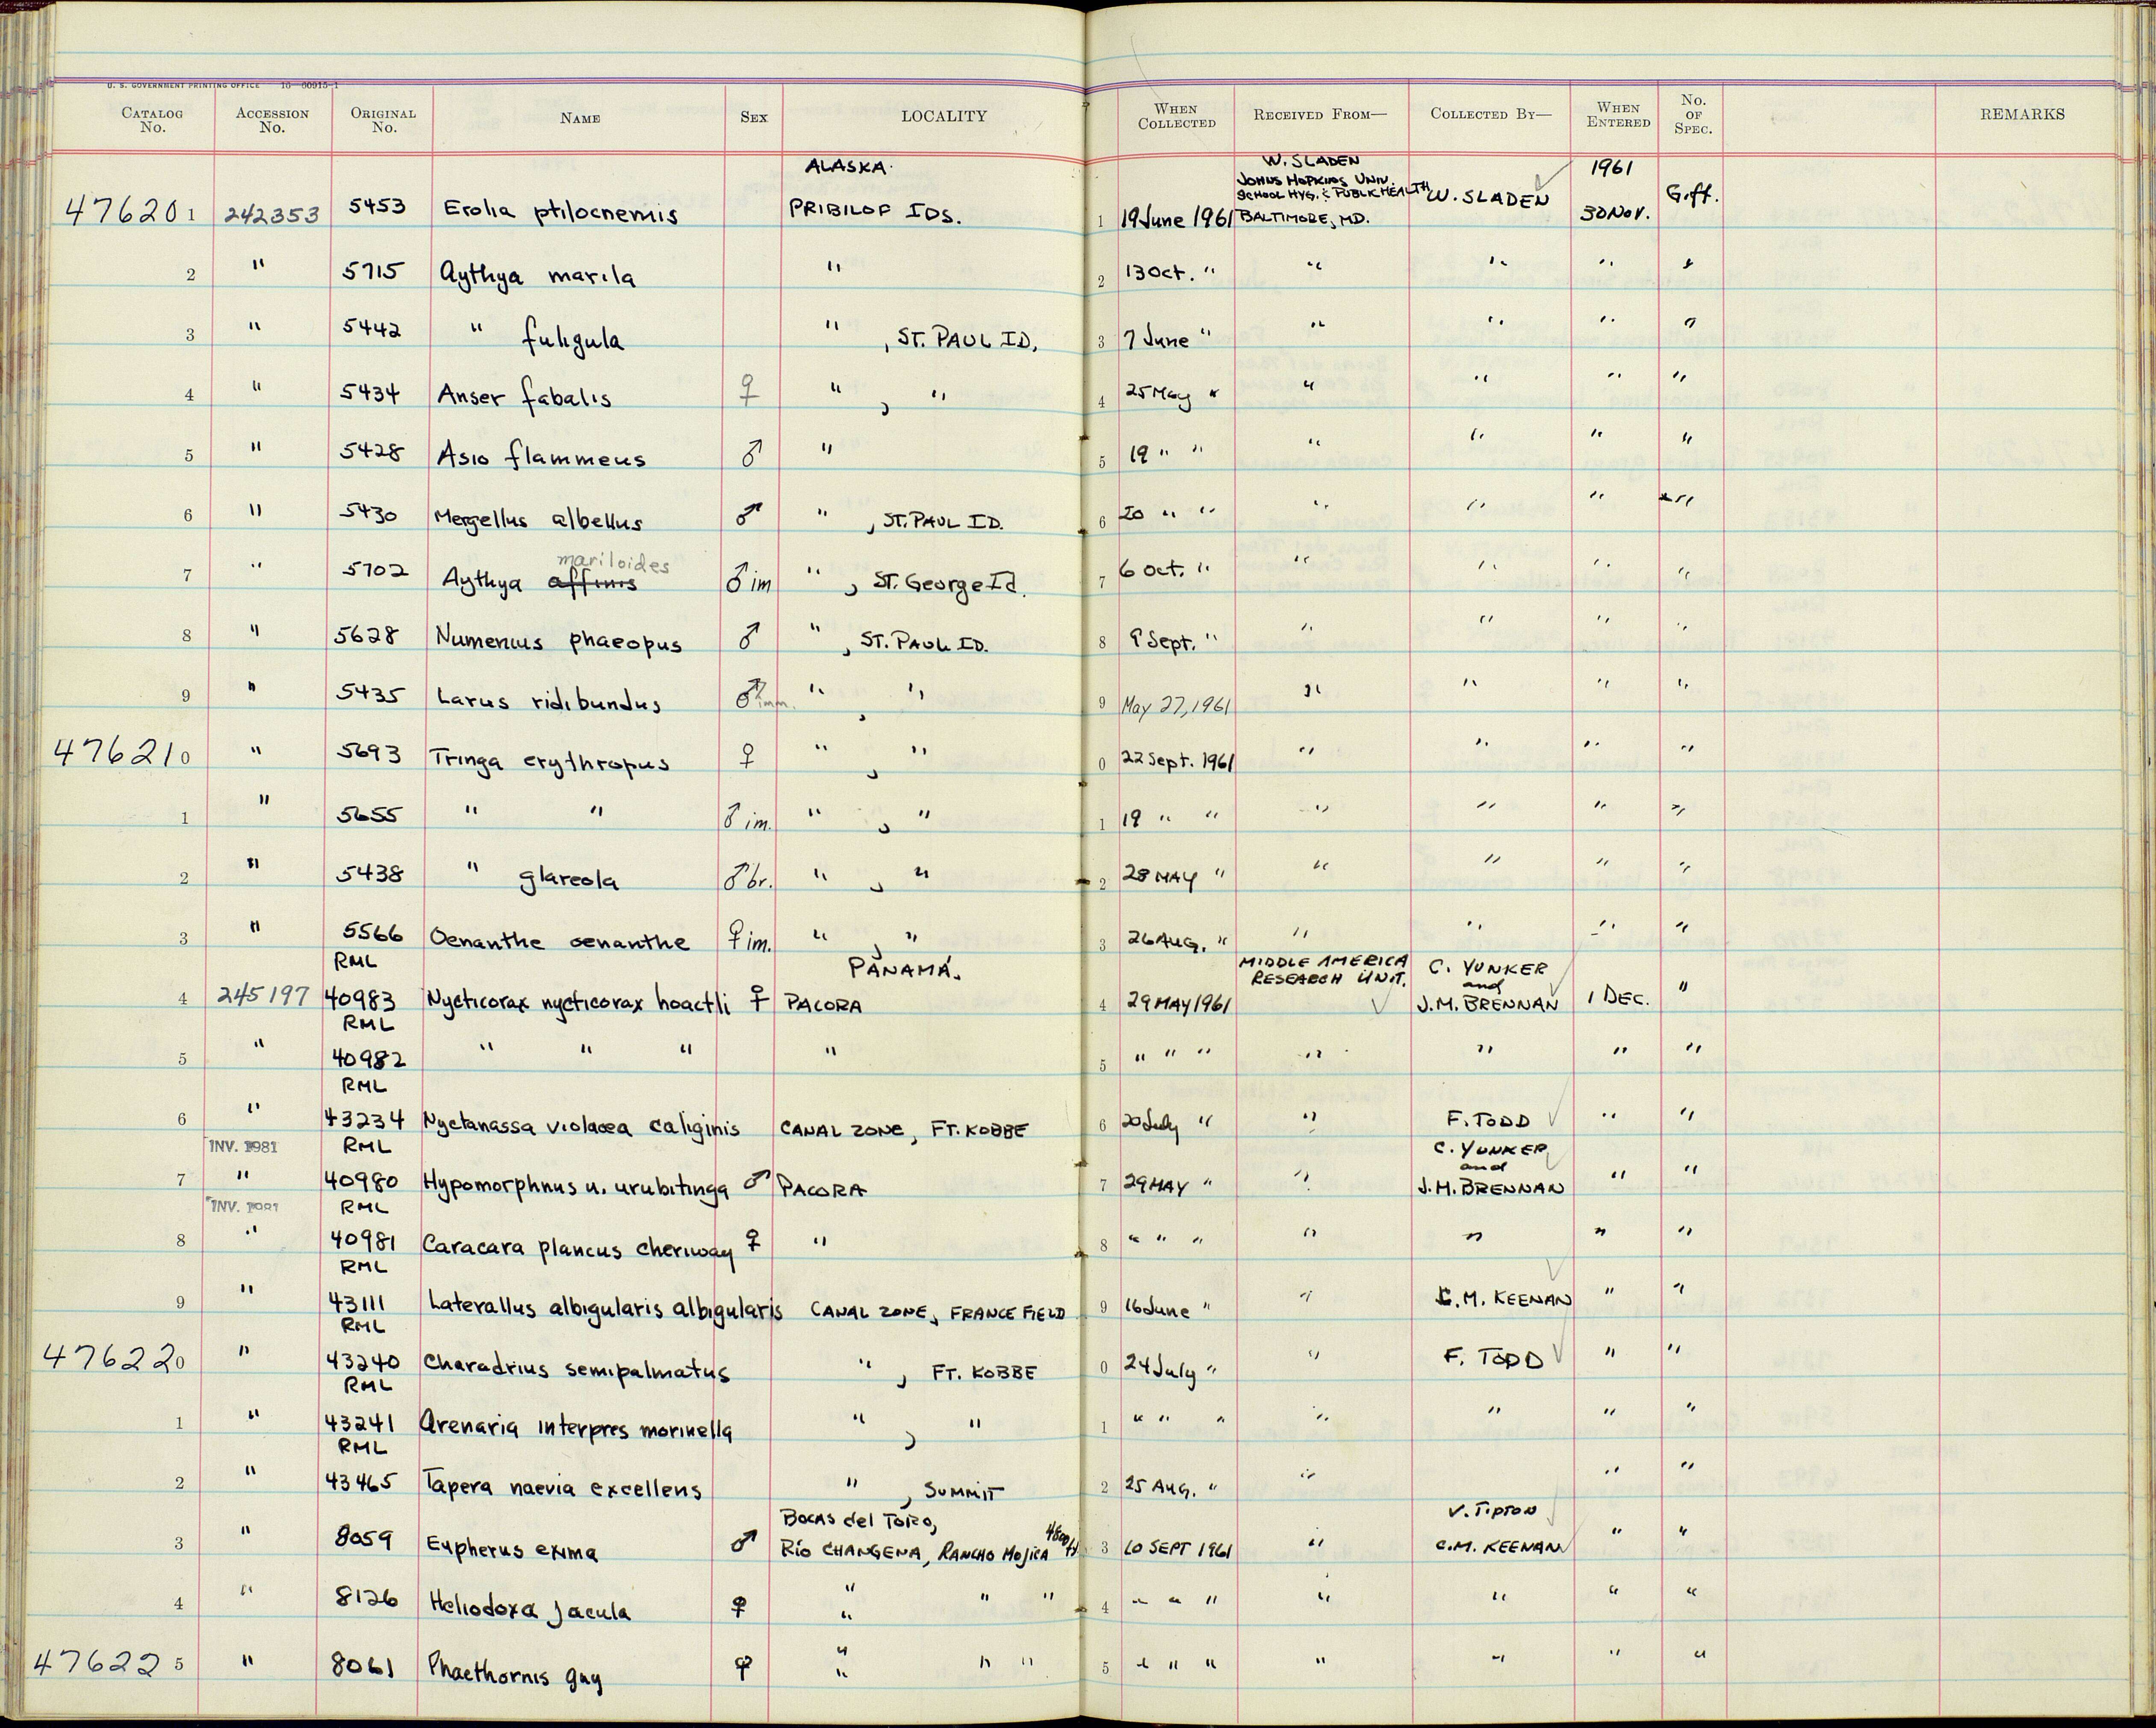 U. S. GOVERNMENT PRINTING OFFICE 16—60915-1
CATALOG No. ACCESSION No. ORIGINAL No. NAME SEX LOCALITY WHEN COLLECTED RECEIVED FROM— COLLECTED BY— WHEN ENTERED No. OF SPEC. REMARKS
ALASKA. W. SLADEN 1961
JOHNS HOPKINS UNIV.
SCHOOL HYG. & PUBLIC HEALTH
476201 242353 5453 Erolia ptilocnemis PRIBILOF IDS. 1 19 June 1961 BALTIMORE, MD. W. SLADEN 30 Nov. Gift.
2 " 5715 Aythya marila " 2 13 Oct. " " " " "
3 " 5442 " fuligula " , ST. PAUL ID. 3 7 June " " " " "
4 " 5434 Anser fabalis ♀ " , " 4 25 May " " " " "
5 " 5428 Asio flammeus ♂ " 5 19 " " " " " "
6 " 5430 Mergellus albellus ♂ " , ST. PAUL ID. 6 20 " " " " " "
mariloides
7 " 5702 Aythya affinis ♂ im " , ST. George Id. 7 6 Oct. " " " " "
8 " 5628 Numenius phaeopus ♂ " , ST. PAUL ID. 8 9 Sept. " " " " "
9 " 5435 Larus ridibundus ♂ imm. " , " 9 May 27, 1961 " " " "
476210 " 5693 Tringa erythropus ♀ " , " 0 22 Sept. 1961 " " " "
1 " 5655 " " ♂ im. " , " 1 19 " " " " " "
2 " 5438 " glareola ♂ br. " , " 2 28 MAY " " " " "
3 " 5566 Oenanthe oenanthe ♀ im. " , " 3 26 AUG. " " " " "
RML PANAMÁ. MIDDLE AMERICA RESEARCH UNIT. C. YUNKER and
4 245197 40983 Nycticorax nycticorax hoactli ♀ PACORA 4 29 MAY 1961 J.M. BRENNAN 1 DEC. "
RML
5 " 40982 " " " " 5 " " " " " " "
RML
6 " 43234 Nyctanassa violacea caliginis CANAL ZONE, FT. KOBBE 6 20 July " " F. TODD " "
INV. 1981 RML C. YUNKER and
7 " 40980 Hypomorphnus u. urubitinga ♂ PACORA 7 29 MAY " " J.M. BRENNAN " "
INV. 1981 RML
8 " 40981 Caracara plancus cheriway ♀ " 8 " " " " " " "
RML
9 " 43111 Laterallus albigularis albigularis CANAL ZONE, FRANCE FIELD 9 16 June " " C.M. KEENAN " "
RML
476220 " 43240 Charadrius semipalmatus " , FT. KOBBE 0 24 July " " F. TODD " "
RML
1 " 43241 Arenaria interpres morinella " , " 1 " " " " " " "
RML
2 " 43465 Tapera naevia excellens " , SUMMIT 2 25 AUG. " " " "
BOCAS del TORO, V. TIPTON
3 " 8059 Eupherus exima ♂ Río CHANGENA, RANCHO Mojica 4800 ft. 3 10 SEPT 1961 " C.M. KEENAN " "
4 " 8126 Heliodoxa jacula ♀ " " " " 4 " " " " " " "
476225 " 8061 Phaethornis guy ♀ " " " " 5 " " " " " " "